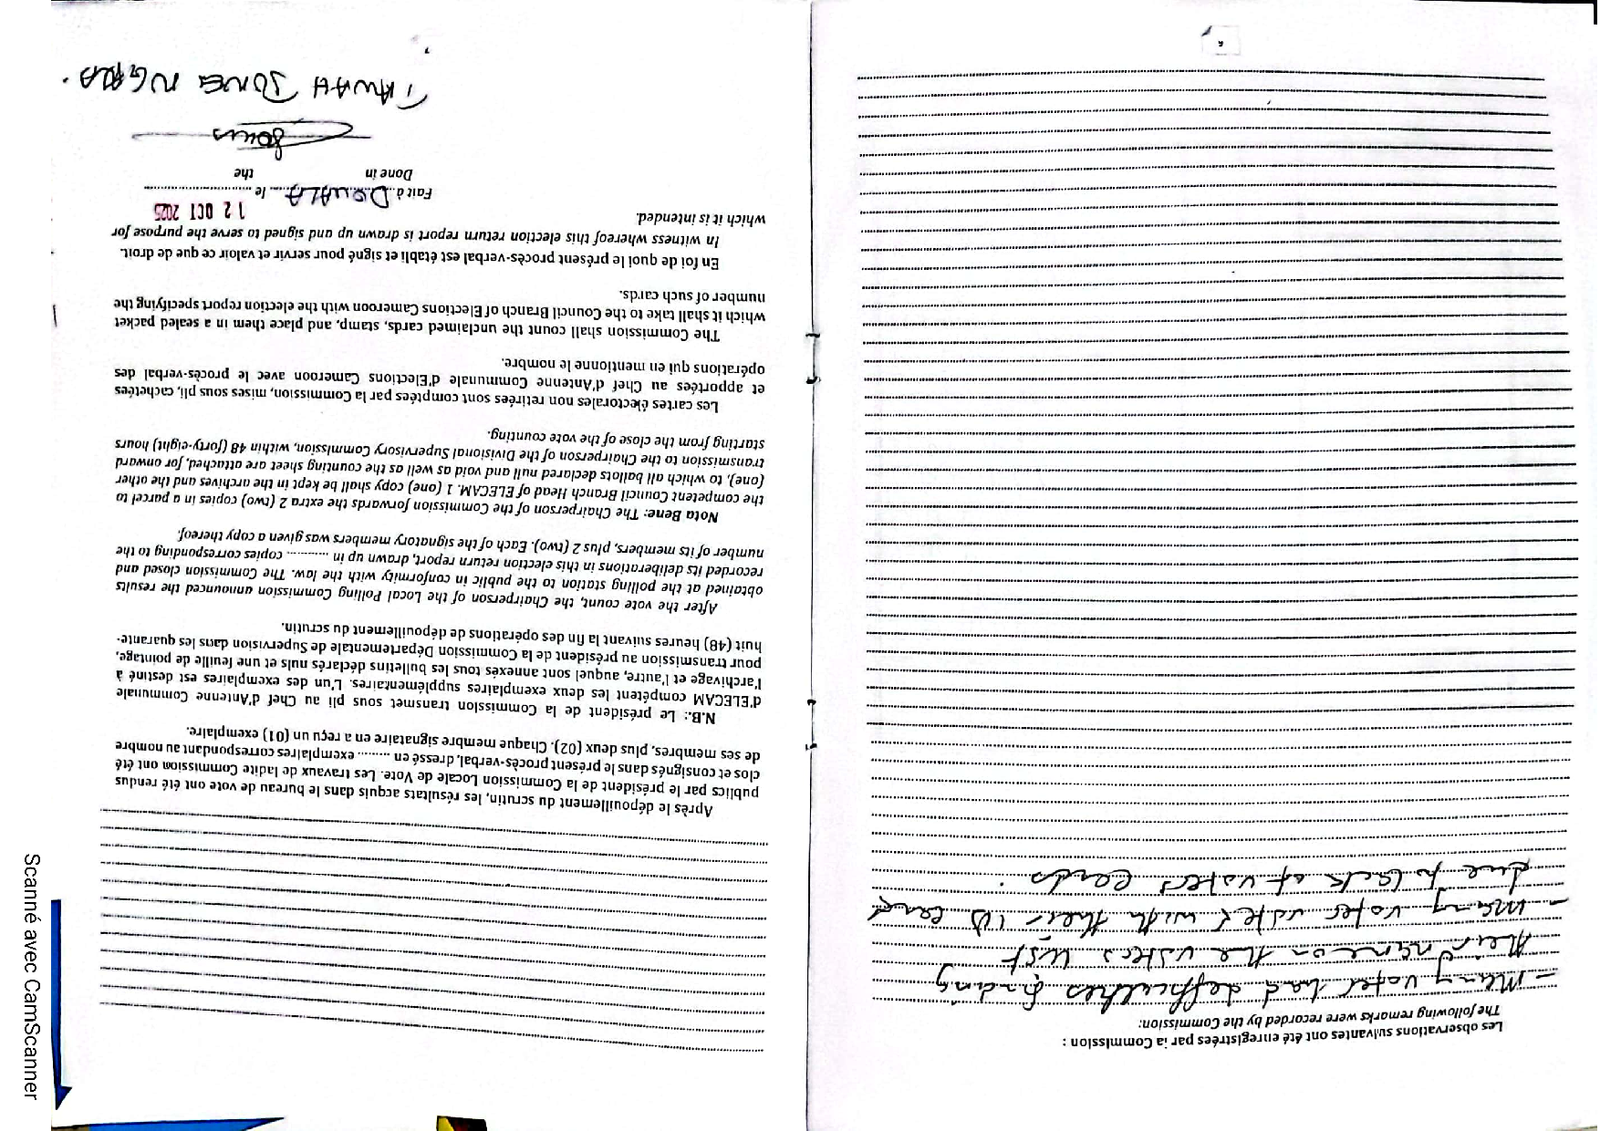 Les observations suivantes ont été enregistrées par la Commission :
The following remarks were recorded by the Commission:
- Many voter had defficulties finding
their name on the voters list
- Many voter voted with their ID card
due to lack of voters cards .
6
Après le dépouillement du scrutin, les résultats acquis dans le bureau de vote ont été rendus
publics par le président de la Commission Locale de Vote. Les travaux de ladite Commission ont été
clos et consignés dans le présent procès-verbal, dressé en ......... exemplaires correspondant au nombre
de ses membres, plus deux (02). Chaque membre signataire en a reçu un (01) exemplaire.
N.B.: Le président de la Commission transmet sous pli au Chef d'Antenne Communale
d'ELECAM compétent les deux exemplaires supplémentaires. L'un des exemplaires est destiné à
l'archivage et l'autre, auquel sont annexés tous les bulletins déclarés nuls et une feuille de pointage,
pour transmission au président de la Commission Départementale de Supervision dans les quarante-
huit (48) heures suivant la fin des opérations de dépouillement du scrutin.
After the vote count, the Chairperson of the Local Polling Commission announced the results
obtained at the polling station to the public in conformity with the law. The Commission closed and
recorded its deliberations in this election return report, drawn up in ............ copies corresponding to the
number of its members, plus 2 (two). Each of the signatory members was given a copy thereof.
Nota Bene: The Chairperson of the Commission forwards the extra 2 (two) copies in a parcel to
the competent Council Branch Head of ELECAM. 1 (one) copy shall be kept in the archives and the other
(one), to which all ballots declared null and void as well as the counting sheet are attached, for onward
transmission to the Chairperson of the Divisional Supervisory Commission, within 48 (forty-eight) hours
starting from the close of the vote counting.
Les cartes électorales non retirées sont comptées par la Commission, mises sous pli, cachetées
et apportées au Chef d'Antenne Communale d'Elections Cameroon avec le procès-verbal des
opérations qui en mentionne le nombre.
The Commission shall count the unclaimed cards, stamp, and place them in a sealed packet
which it shall take to the Council Branch of Elections Cameroon with the election report specifying the
number of such cards.
En foi de quoi le présent procès-verbal est établi et signé pour servir et valoir ce que de droit.
In witness whereof this election return report is drawn up and signed to serve the purpose for
which it is intended.
12 OCT 2025
Fait à DOUALA le
Done in the
TAWAH JONG NGALA.
Scanné avec CamScanner